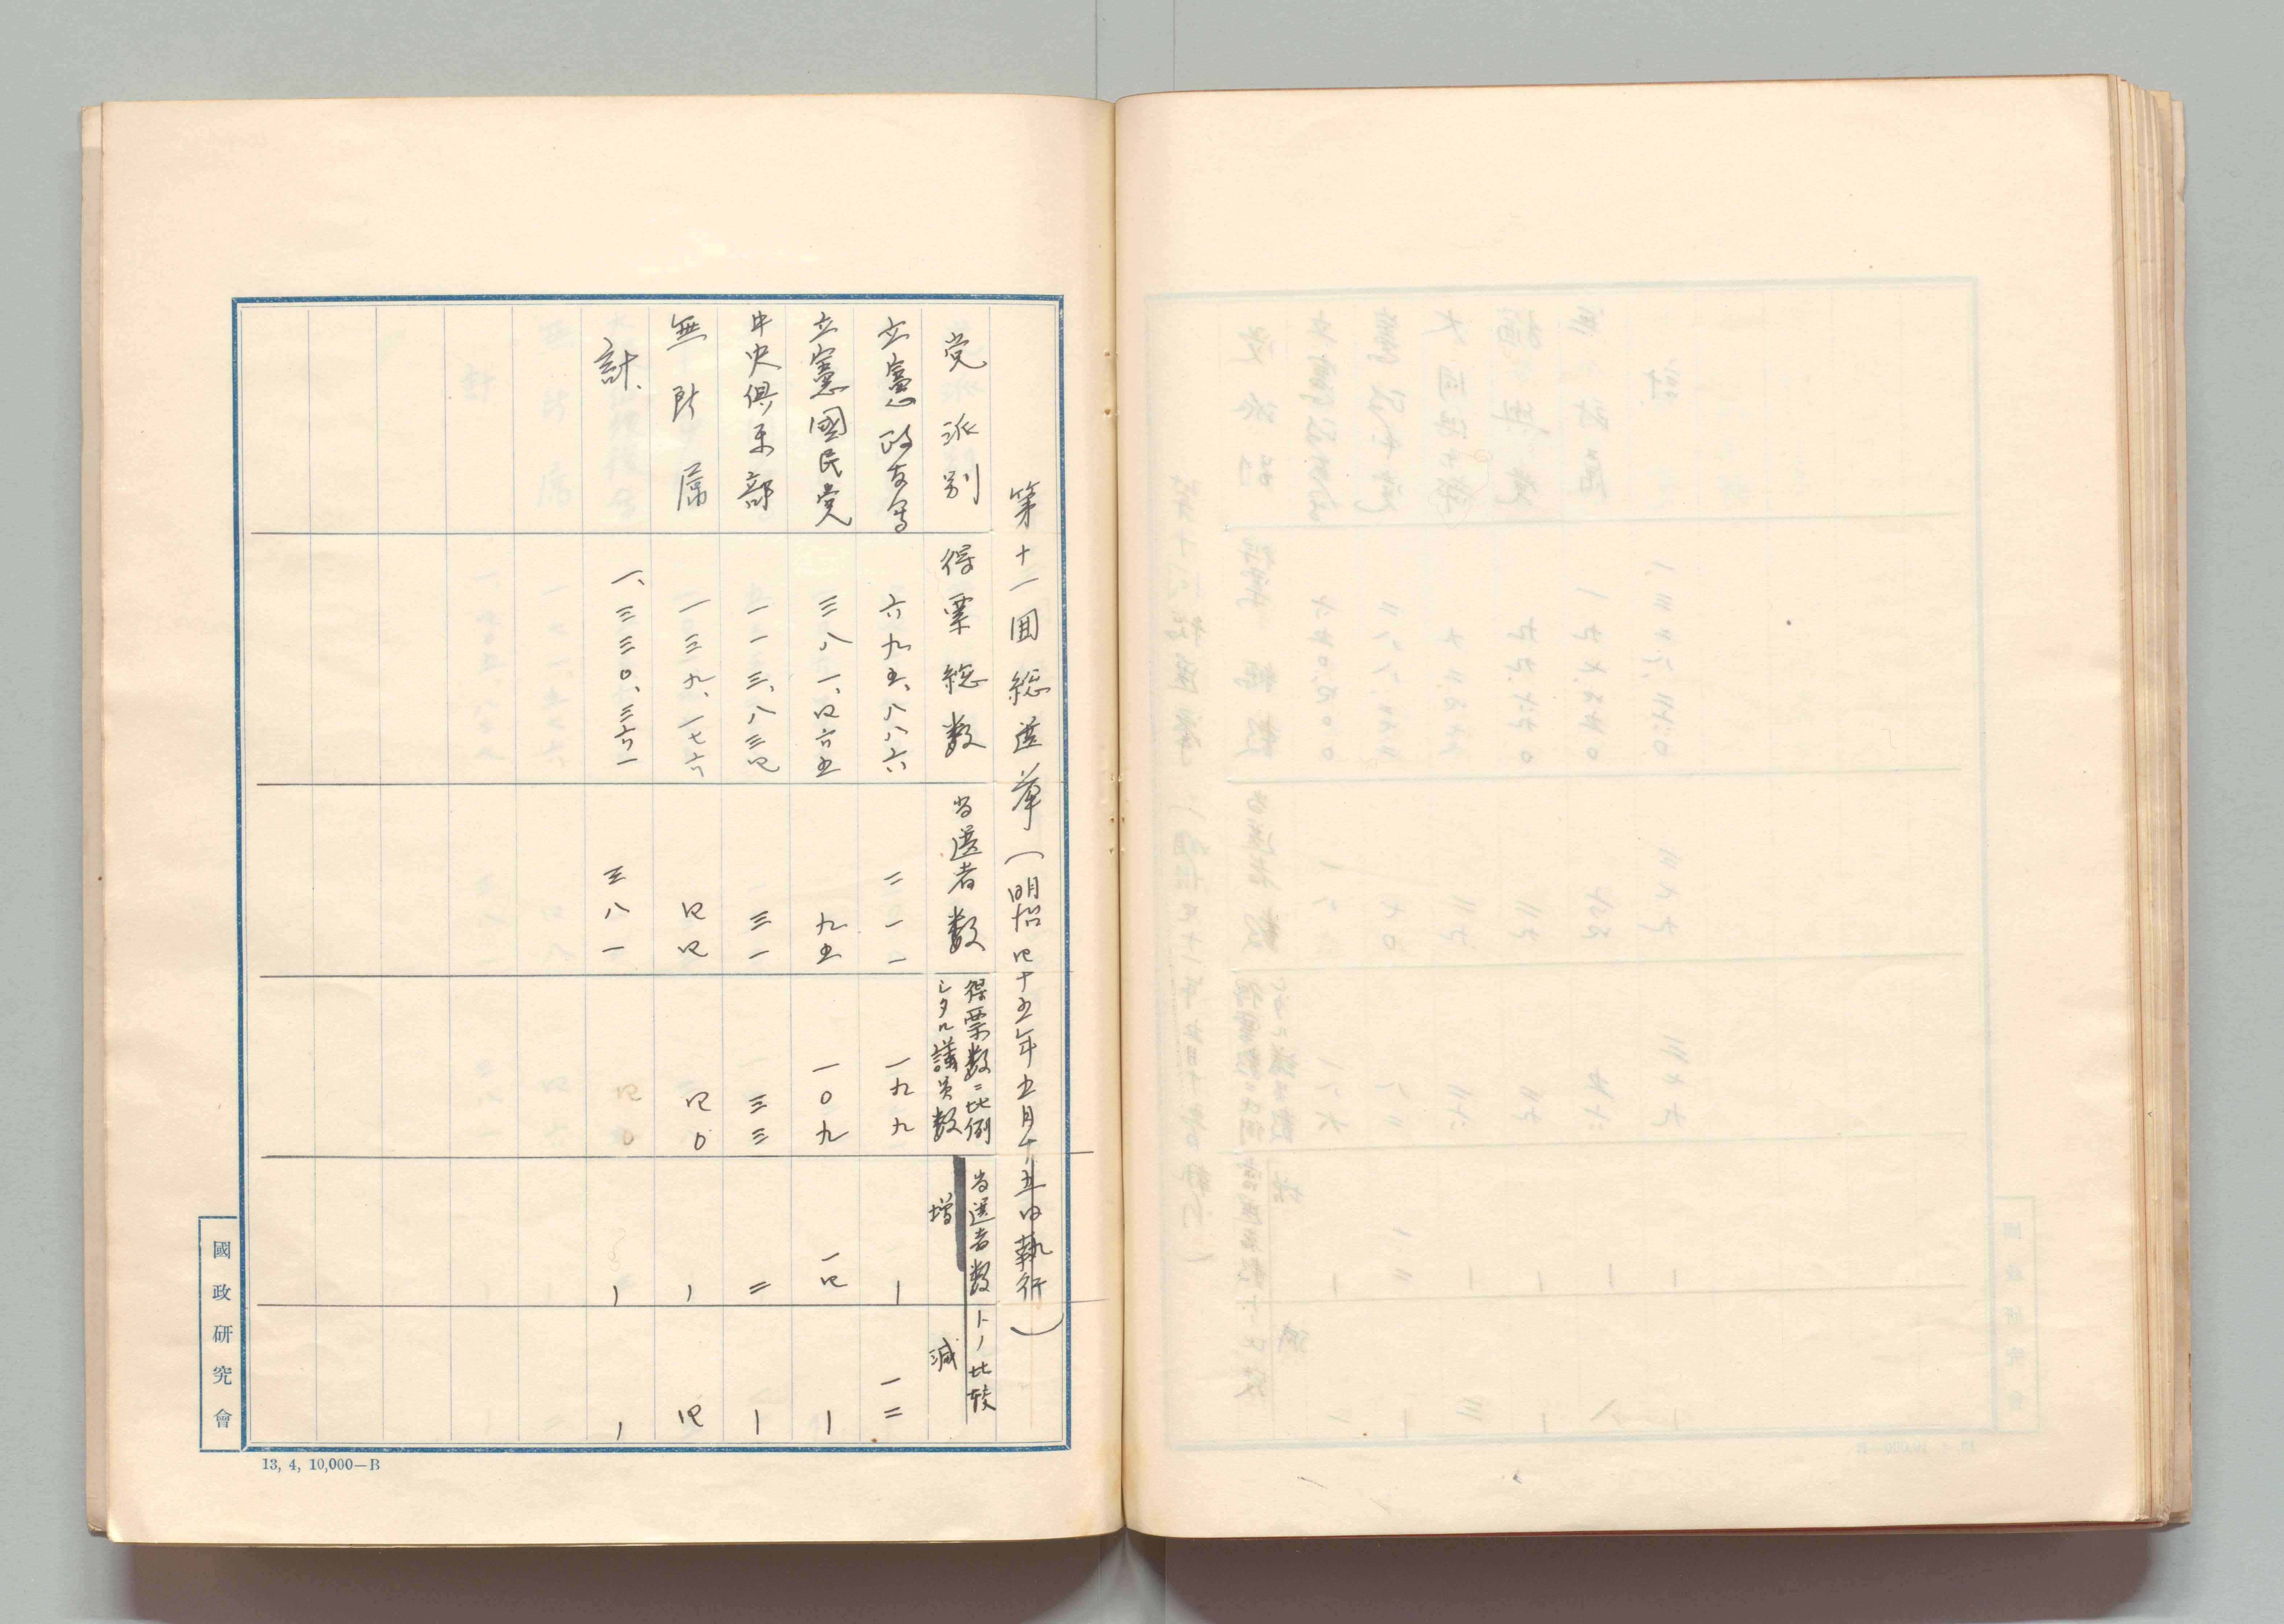 第十一囬総選挙（明治四十五年五月十五日執行）
党派別 得票総数 当選者数 得票数ニ比例シタル議員数 当選者数トノ比較 増 減
立憲政友会 六九五、八八六 二一一 一九九 ー 一二
立憲國民党 三八一、四六五 九五 一〇九 一四 ー
中央倶楽部 一一三、八三四 三一 三三 二 ー
無所属 一三九、一七六 四四 四〇 ー 四
計、 一、三三〇、三六一 三八一 ー ー
國政研究會
13, 4, 10,000—B